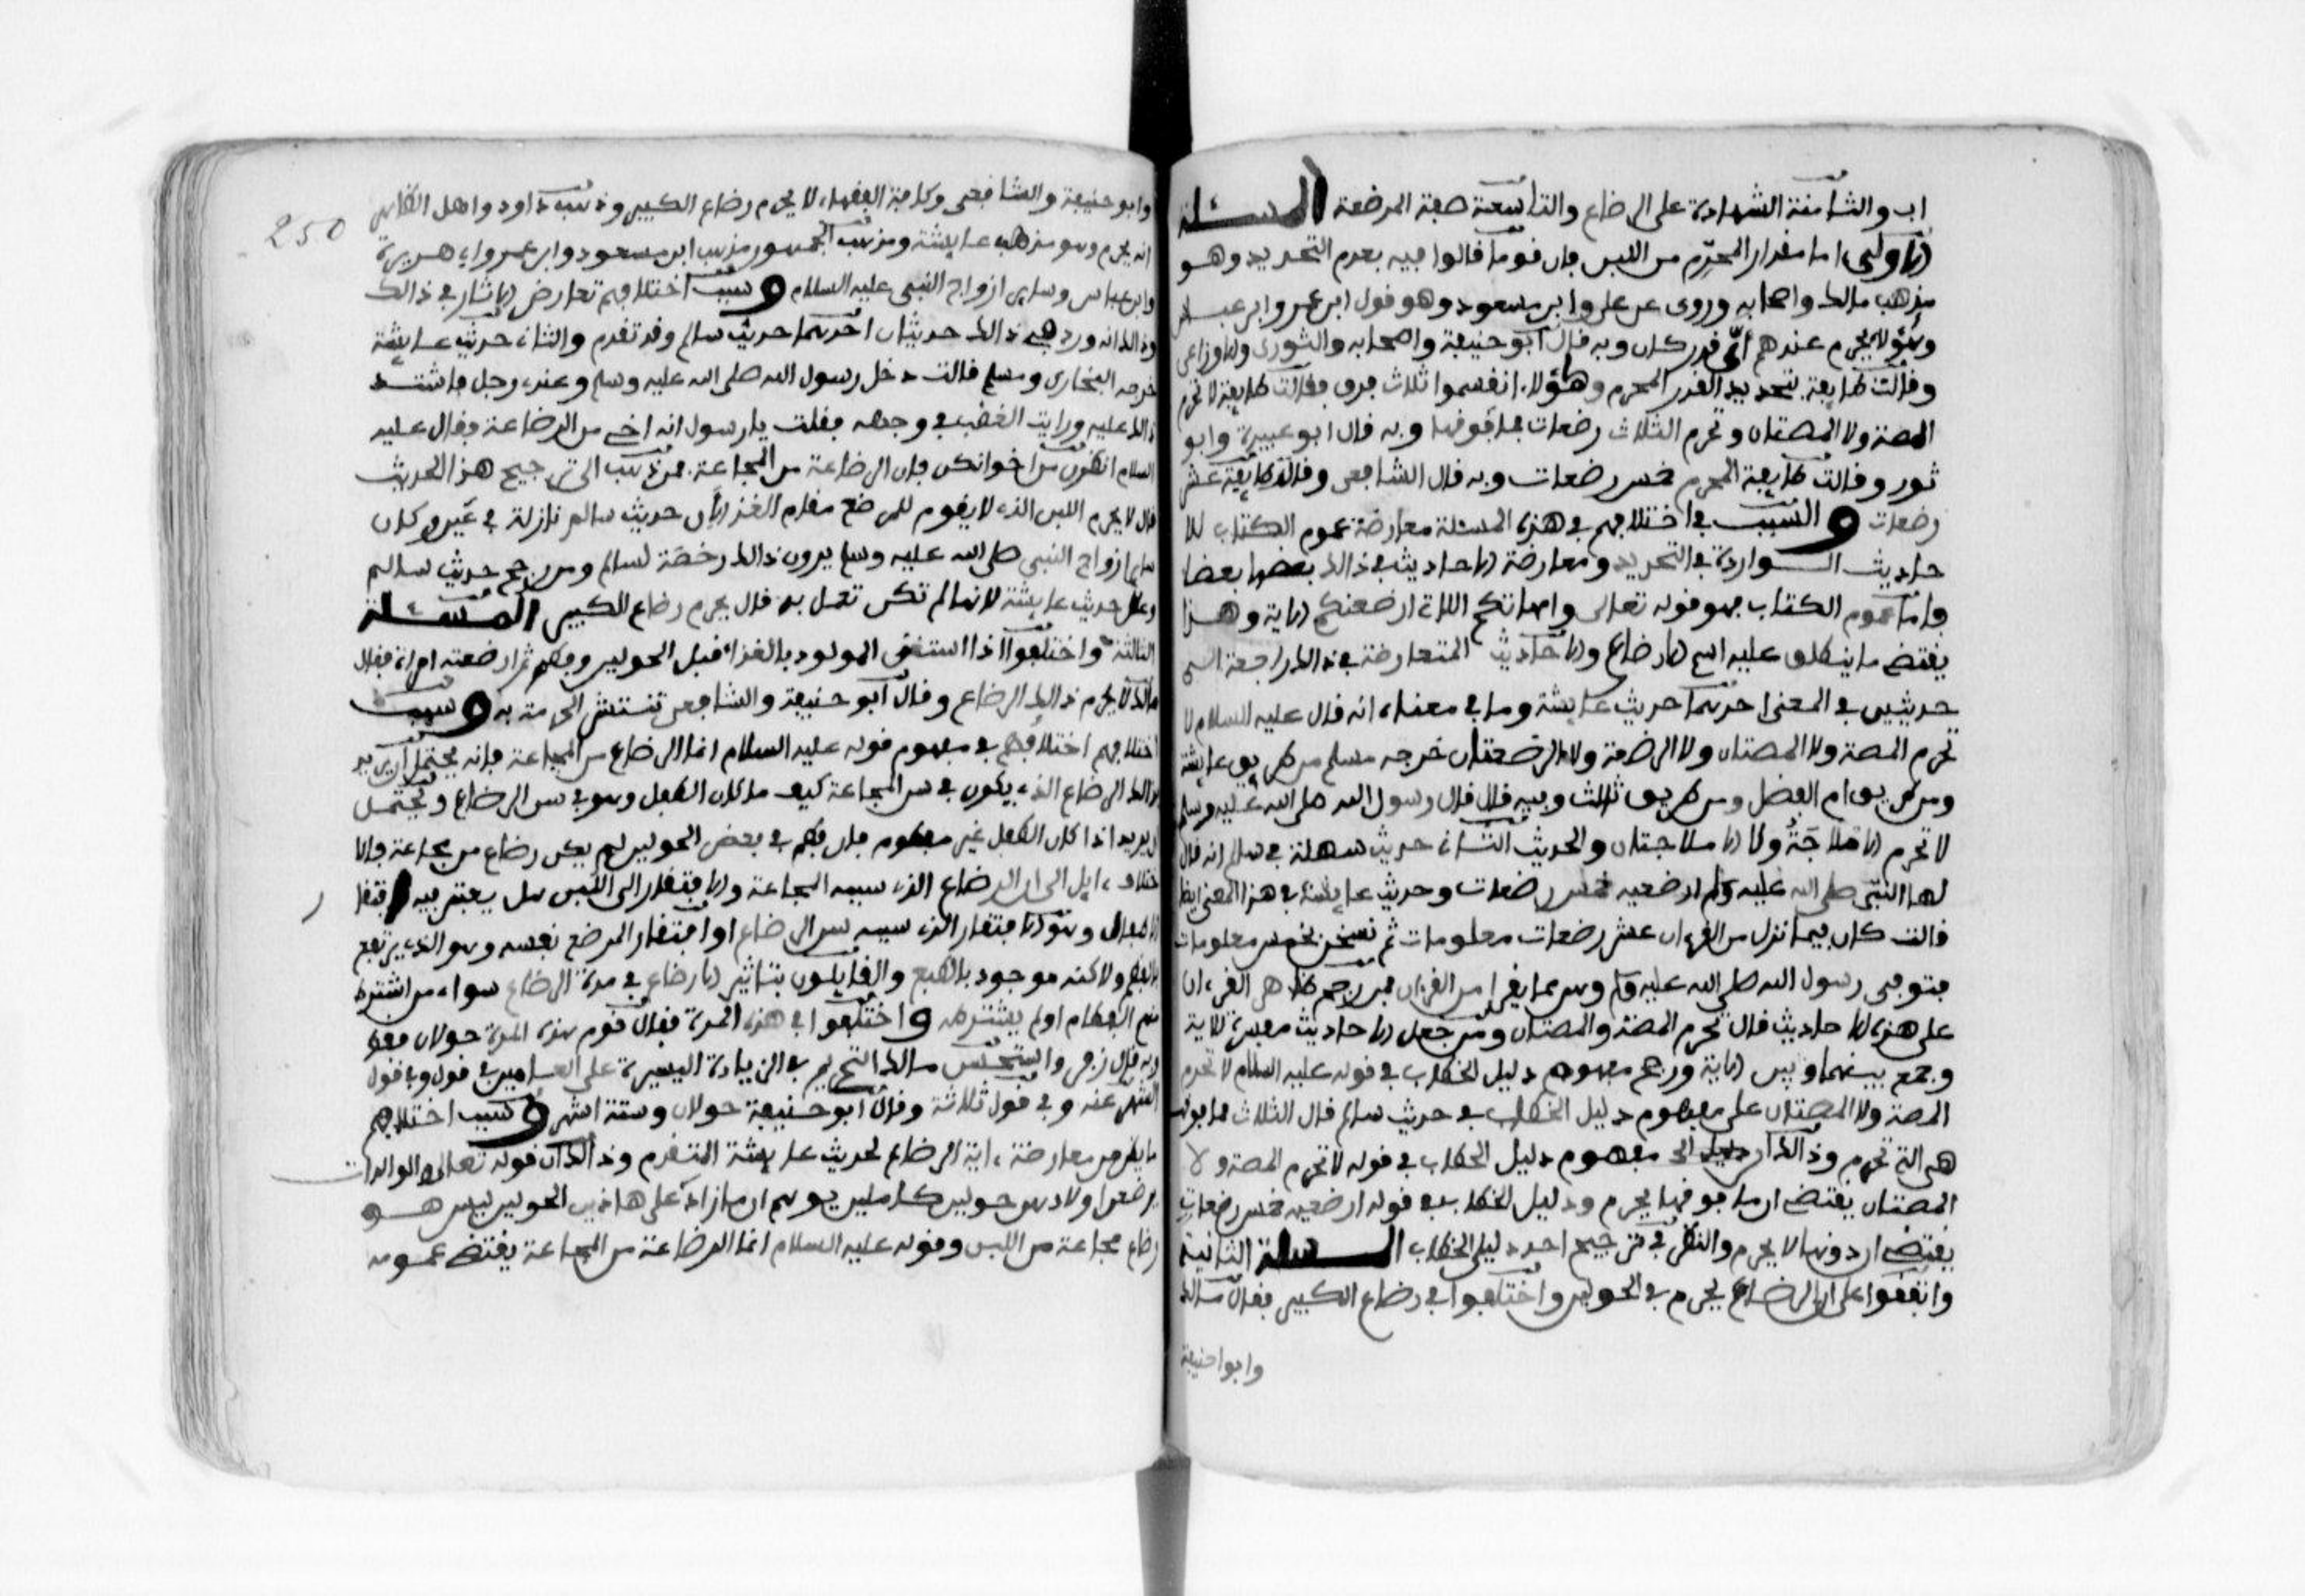 اب والثامنة الشهادة على الرضاع والتاسعة صفة المرضعة المسئلة
الاولى اما مقدار المحرّم من اللبن فان قوما قالوا فيه بعدم التحديد وهو
مذهب مالك واصحابه وروى عن علي وابن مسعود وهو قول ابن عمر وابن عباس
وهؤلاء يحرم عندهم اىّ قدر كان وبه قال ابو حنيفة واصحابه والثورى والاوزاعى
وقالت طايفة بتحديد القدر المحرم وهؤلاء انقسموا ثلاث فرق فقالت طايفة لا تحرم
المصة ولا المصتان وتحرم الثلاث رضعات فما فوقها وبه قال ابو عبيدة وابو
ثور وقالت طايفة المحرم خمس رضعات وبه قال الشافعى وقالت طايفة عشر
رضعات والسبب في اختلافهم في هذه المسئلة معارضة عموم الكتاب للا
حاديث الـواردة في التحديد ومعارضة الاحاديث في ذالك بعضها بعضا
واما عموم الكتاب فهو قوله تعالى وامهاتكم اللاتي ارضعنكم الاية وهذا
يقتضي ما ينطلق عليه اسم الارضاع والاحاديث المتعارضة في ذالك راجعة الى
حديثين في المعنى احدهما حديث عايشة وما في معناه انه قال عليه السلام لا
تحرم المصة ولا المصتان ولا الرضعة ولا الرضعتان خرجه مسلم من طريق عايشة
ومن طريق ام الفضل ومن طريق ثالث وفيه قال قال رسول الله صلى الله عليه وسلم
لا تحرم الاملاجَةُ ولا الاملاجتان والحديث الثاني حديث سهلة في سالم انه قال
لها النبّي صلى الله عليه وسلم ارضعيه خمس رضعات وحديث عايشة في هذا المعنى ايضا
قالت كان فيما نزل من القرءان عشر رضعات معلومات ثم نسخن بخمس معلومات
فتوفي رسول الله صلى الله عليه وسلم وهن مما يقرا من القرءان فمن رجح ظاهر القرءان
على هذه الاحاديث قال تحرم المصة والمصتان ومن جعل الاحاديث مفسرة للاية
وجمع بينهما وبين الاية ورجح مفهوم دليل الخطاب في قوله عليه السلام لا تحرم
المصة ولا المصتان على مفهوم دليل الخطاب في حديث سالم قال الثلاث فما فوقها
هي التي تحرم وذالك ان دليل الخطاب في قوله لا تحرم المصة ولا
المصتان يقتضي ان ما فوقها يحرم ودليل الخطاب في قوله ارضعيه خمس رضعات
يقتضي ان دونها لا يحرم والنظر في ترجيح احد دليلي الخطاب المسئلة الثانية
واتفقوا على ان الرضاع يحرم في الحولين واختلفوا في رضاع الكبير فقال مالك
وابوا حنيفة
250
وابو حنيفة والشافعى وكافة الفقهاء لا يحرم رضاع الكبير وذهب داود واهل الظاهر الى
انه يحرم وهو مذهب عايشة ومذهب الجمهور مذهب ابن مسعود وابن عمر وابي هريرة
وابن عباس وساير ازواج النبي عليه السلام وسبب اختلافهم تعارض الاثار في ذالك
وذالك انه ورد في ذالك حديثان احدهما حديث سالم وقد تقدم والثاني حديث عايشة
خرجه البخارى ومسلم قالت دخل رسول الله صلى الله عليه وسلم وعندي رجل فاشتد
ذالك عليه ورايت الغضب في وجهه فقلت يا رسول انه اخي من الرضاعة فقال عليه
السلام انظرن من اخوانكن فان الرضاعة من المجاعة فمن ذهب الى ترجيح هذا الحديث
قال لا يحرم اللبن الذي لا يقوم للمرضع مقام الغذا لان حديث سالم نازلة في عين وكان
ساير ازواج النبي صلى الله عليه وسلم يرون ذالك رخصَة لسالم ومن رجح حديث سالم
وعلل حديث عايشة لانها لم تكن تعمل به قال يحرم رضاع الكبير المسئلة
الثالثة واختلفوا اذا استغنى المولود بالغذاء قبل الحولين وفطم ثم ارضعته امراة فقال
مالك لا يحرم ذالك الرضاع وقال ابو حنيفة والشافعى تنتشر الحرمة به وسبب
اختلافهم اختلافهم في مفهوم قوله عليه السلام انما الرضاع من المجاعة فانه يحتمل ان يريد
ذالك الرضاع الذي يكون في سن المجاعة كيف ما كان الطفل وهو في سن الرضاع ويحتمل
ان يريد اذا كان الطفل غير مفطوم فان فطم في بعض الحولين لم يكن رضاع من مجاعة فالا
ختلاف ءايل الى ان الرضاع الذي سببه المجاعة والافتقار الى اللبن هل يعتبر فيه افتقا
ر الاطفال وهو الافتقار الذي سببه سن الرضاع او افتقار المرضع نفسه وهو الذي يرتفع
بالفطم ولاكنه موجود بالطبع والقايلون بتاثير الارضاع في مدة الرضاع سواء من اشترط
منهم الفطام اولم يشترطه واختلفوا في هذه المدة فقال قوم هذه المدة حولان فقط
وبه قال زفر واستحسن مالك التحريم في الزيادة اليسيرة على العامين في قول وفي قول
الشهر عنه وفي قول ثلاثة وقال ابو حنيفة حولان وستة اشهر وسبب اختلافهم
ما يظن من معارضة ءاية الرضاع لحديث عايشة المتقدم وذالك ان قوله تعالى والوالدات
يرضعن اولادهن حولين كاملين يوهم ان ما زاد على هاذين الحولين ليس هو
رضاع مجاعة من اللبن وقوله عليه السلام انما الرضاعة من المجاعة يقتضي عمومه